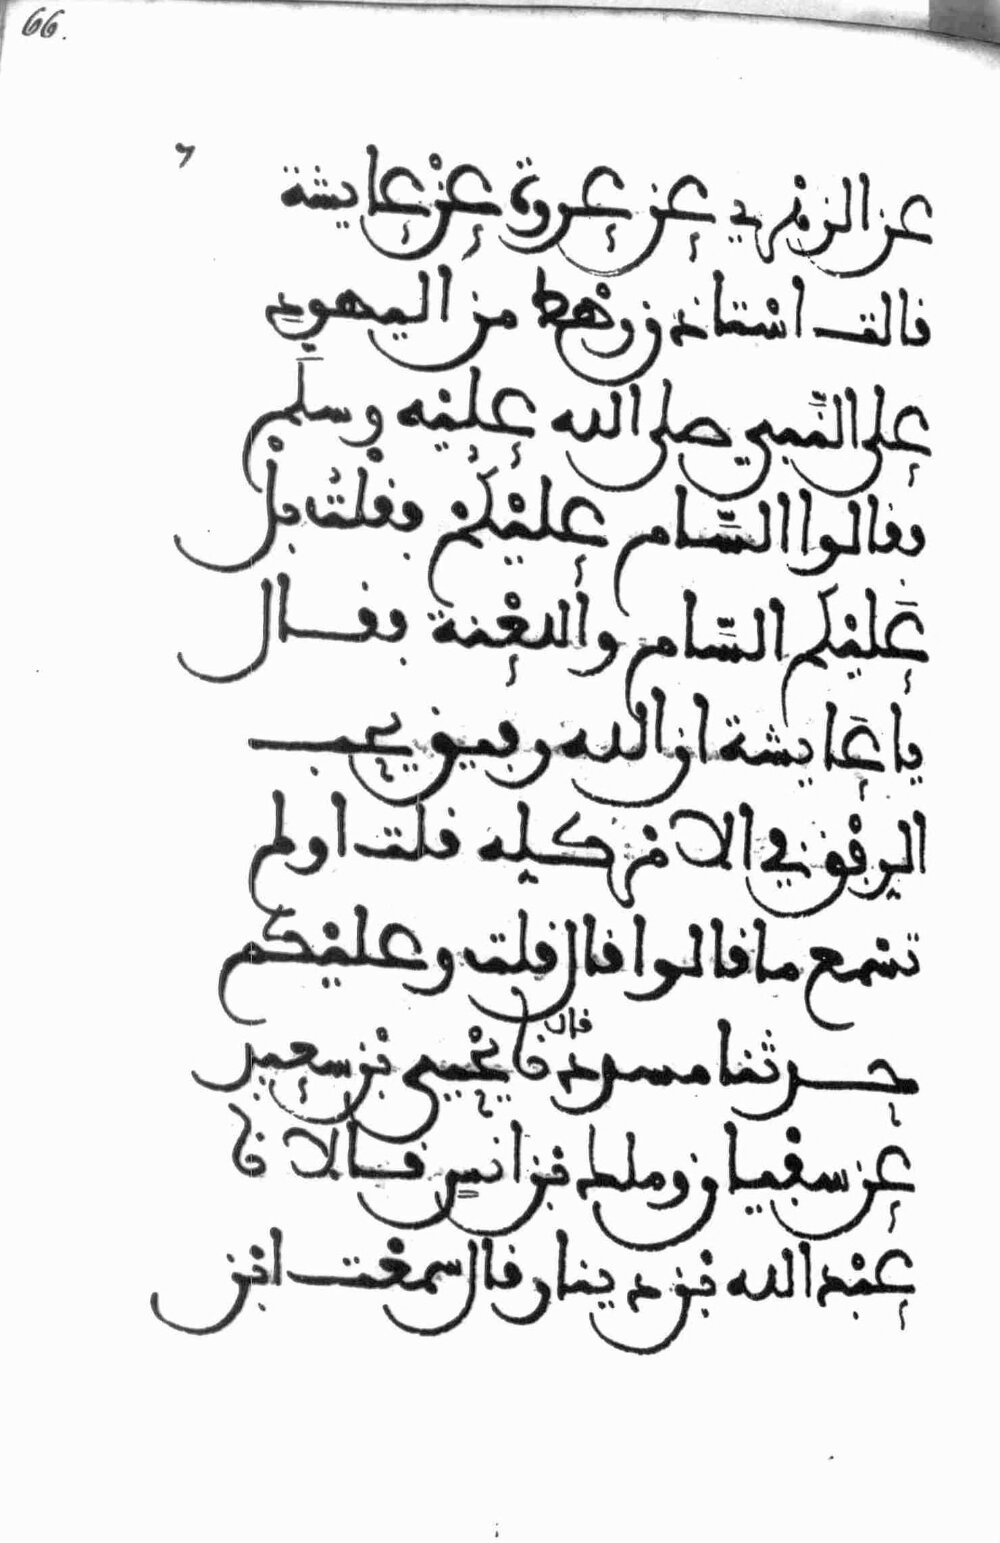 66.
عن الزهري عن عروة عن عايشة
قالت استاذن رهط من اليهود
على النبي صلى الله عليه وسلم
فقالوا السام عليكم فقلت بل
عليكم السام واللعنة فقال
يا عايشة ان الله رفيق يحب
الرفق في الامر كله قلت اولم
تسمع ما قالوا قال قلت وعليكم
حدثنا مسدد قال نا يحيى بن سعيد
عن سفيان وملك بن انس قالا نا
عبد الله بن دينار قال سمعت ابن